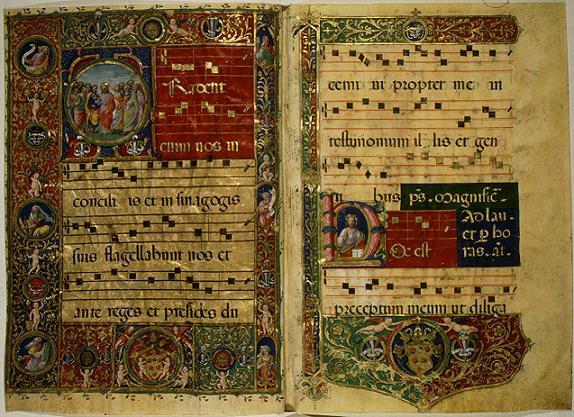 Tradent
enim uos in
concili is et in sinagogis
suis flagellabunt uos et
ante reges et presides du
cemi ni propter me in
testimonium il lis et gen
ti bus ps. Magnific̄.
Ad lau-
et ꝑ ho
ras. an̄.
Hoc est
preceptum meum ut diliga